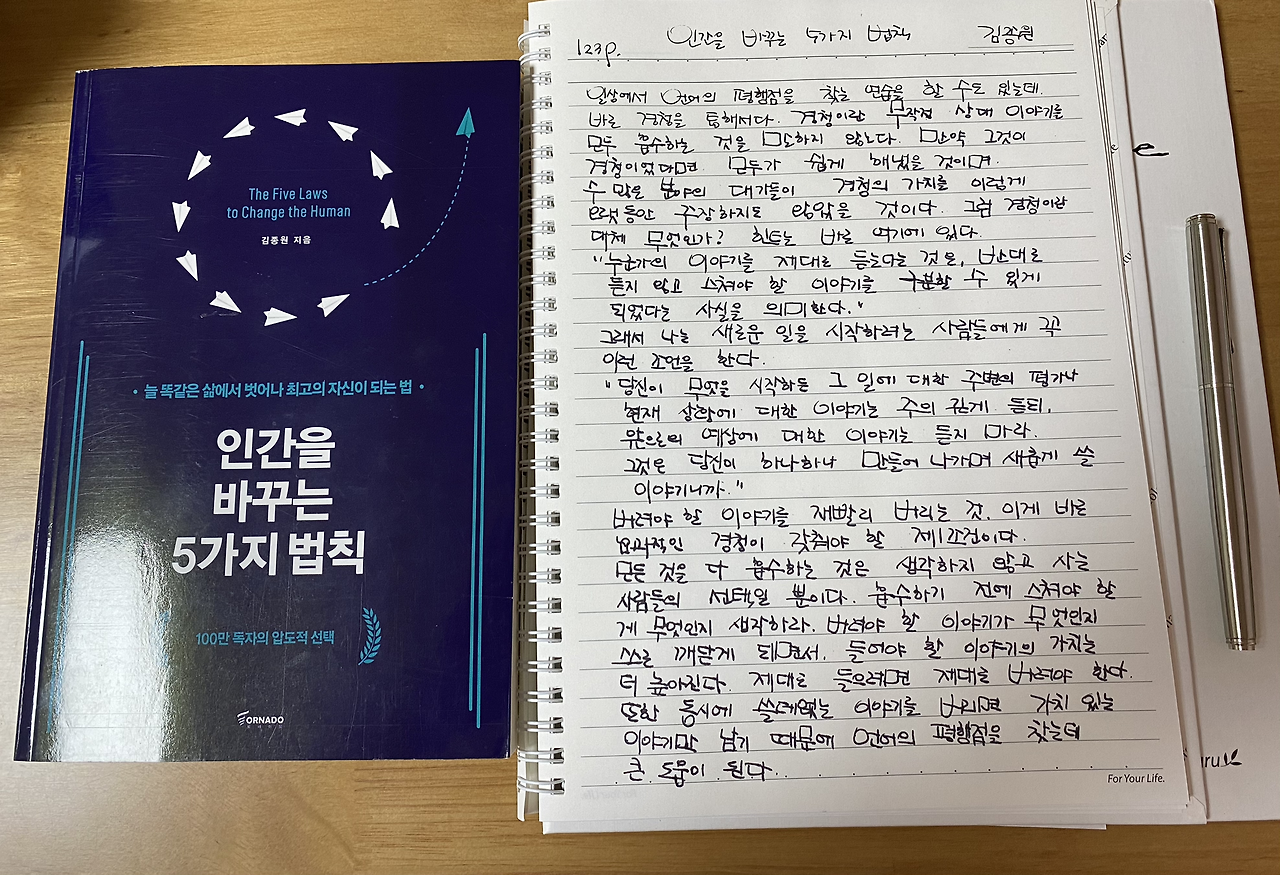 The Five Laws
to Change the Human
김종원 지음
• 늘 똑같은 삶에서 벗어나 최고의 자신이 되는 법 •
인간을
바꾸는
5가지 법칙
100만 독자의 압도적 선택
TORNADO
123p. 인간을 바꾸는 5가지 법칙 김종원
일상에서 언어의 평행점을 찾는 연습을 할 수도 있는데.
바로 경청을 통해서다. 경청이란 무작정 상대 이야기를
모두 흡수하는 것을 말하지 않는다. 만약 그것이
경청이었다면 모두가 쉽게 해냈을 것이며.
수 많은 분야의 대가들이 경청의 가치를 이렇게
오랫동안 주장하지도 않았을 것이다. 그럼 경청이란
대체 무엇인가? 힌트는 바로 여기에 있다.
"누군가의 이야기를 제대로 듣는다는 것은, 반대로
듣지 않고 스쳐야 할 이야기를 구분할 수 있게
되었다는 사실을 의미한다."
그래서 나는 새로운 일을 시작하려는 사람들에게 꼭
이런 조언을 한다.
"당신이 무엇을 시작하든 그 일에 대한 주변의 평가나
현재 상황에 대한 이야기는 주의 깊게 듣되,
앞으로의 예상에 대한 이야기는 듣지 마라.
그것은 당신이 하나하나 만들어 나가며 새롭게 쓸
이야기니까."
버려야 할 이야기를 재빨리 버리는 것, 이게 바로
효과적인 경청이 갖춰야 할 제1조건이다.
모든 것을 다 흡수하는 것은 생각하지 않고 사는
사람들의 선택일 뿐이다. 흡수하기 전에 스쳐야 할
게 무엇인지 생각하라. 버려야 할 이야기가 무엇인지
스스로 깨닫게 되면서, 들어야 할 이야기의 가치는
더 높아진다. 제대로 들으려면 제대로 버려야 한다.
또한 동시에 쓸데없는 이야기를 버리면 가치 있는
이야기만 남기 때문에 언어의 평행점을 찾는데
큰 도움이 된다
For Your Life.